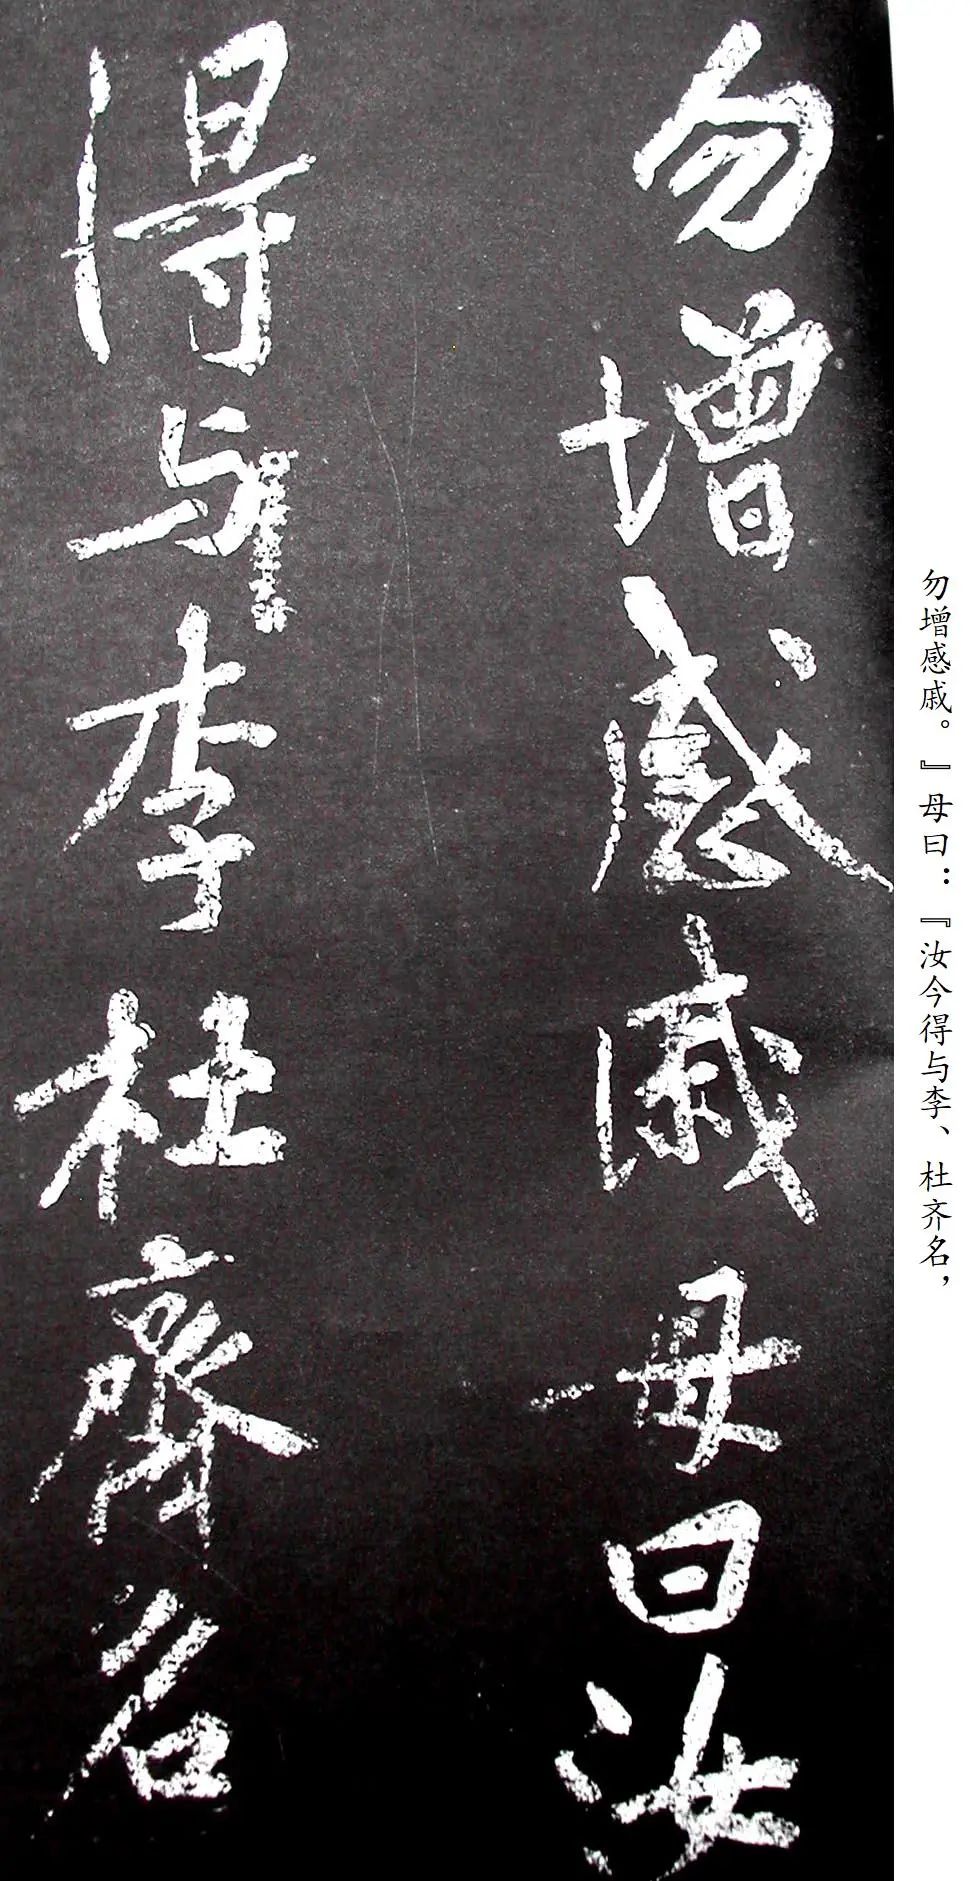 勿增感戚。』母曰：『汝今得与李、杜齐名，
勿增感戚母曰汝
得与李杜齊名